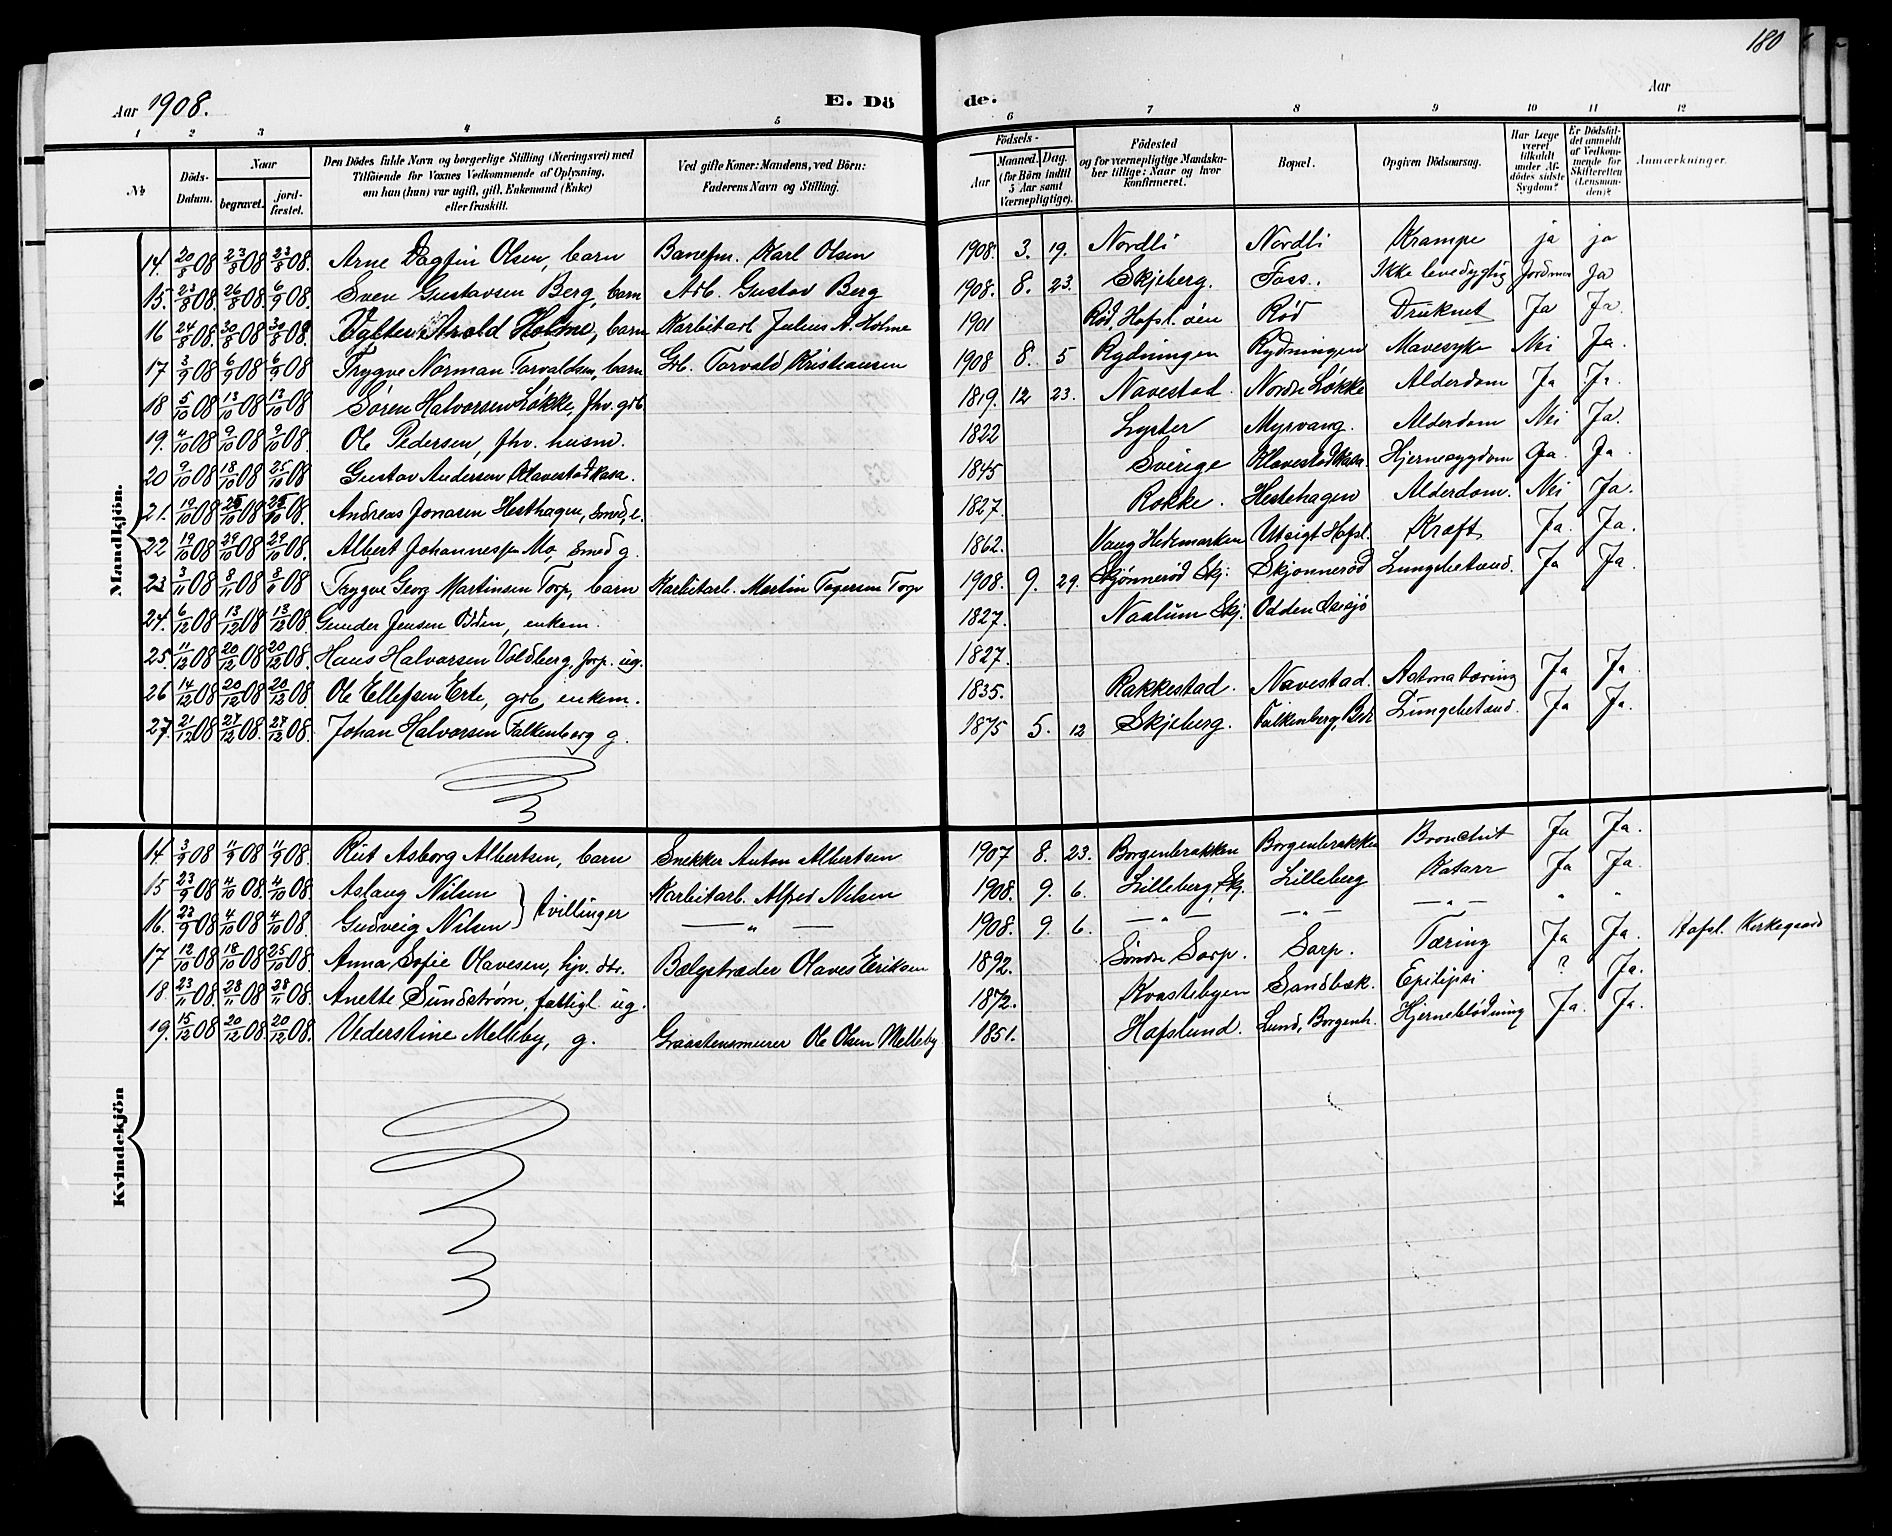 180
Aar 1908. E. Dö de. Aar
1 2 3 4 5 6 7 8 9 10 11 12
№ Döds-Datum. Naar begravet. jord-fæstet. Den Dödes fulde Navn og borgerlige Stilling (Næringsvei) med Tilföiende for Voxnes Vedkommende af Oplysning, om han (hun) var ugift, gift, Enkemand (Enke) eller fraskilt. Ved gifte Koner: Mandens, ved Börn: Faderens Navn og Stilling. Födsels- Aar Maaned. Dag. (for Börn indtil 5 Aar samt Værnepligtige). Födested og for værnepligtige Mandskaber tillige: Naar og hvor konfirmeret. Bopæl. Opgiven Dödsaarsag. Har Læge været tilkaldt under Afdödes sidste Sygdom? Er Dödsfaldet anmeldt af Vedkommende for Skifteretten (Lensmanden)? Anmærkninger.
Mandkjön.
14. 20/8 08 23/8 08 23/8 08. Arne Dagfin Olsen, barn Banefm. Karl Olsen 1908. 3. 19. Nordli Nordli Krampe ja ja
15. 23/8 08. 26/8 08 6/9 08. Sven Gustavsen Berg, barn Arb. Gustav Berg 1908. 8. 23. Skjeberg. Foss. Ikke levedygtig Jordmor Ja
16 24/8 08. 30/8 08 30/8 08. Arold Holme, barn Karbitarb Julius A. Holme 1901 Rød, Hafsl. øen Rød Druknet Ja Ja.
17 3/9 08 6/9 08 6/9 08 Trygve Norman Torvaldsen, barn Grb. Torvald Kristiansen 1908 8. 5 Rydningen Rydningen Mavesyke Nei Ja.
18 5/10 08 13/10 08 13/10 08 Søren Halvorsen Løkke, fhv. grb 1819. 12 23. Navestad. Nordre Løkke Alderdom Ja Ja.
19. 4/10 08 9/10 08 9/10 08. Ole Pedersen, fhv. husm. 1822 Lyster Myrvang. Alderdom Nei Ja.
20 9/10 08 18/10 08 25/10 08 Gustav Andersen Klavestadkasa. 1845 Sverige Klavestadkasa. Hjernesygdom Ja. Ja.
21. 19/10 08 25/10 08 25/10 08. Andreas Jonasen Hesthagen, Smed, e. 1827. Rokke. Hestehagen Alderdom. Nei Ja.
22 19/10 08 29/10 08 29/10 08. Albert Johannessen Mo, Smed g. 1862. Vang Hedemarken Utsigt Hafsl. Kræft Ja. Ja.
23 3/11 08 8/11 08 8/11 08 Trygve Georg Martinsen Torp, barn Karbitarb. Martin Torgersen Torp 1908. 9. 29. Skjønnerød Skj: Skjonnerød Lungebetænd. Ja Ja.
24. 6/12 08 13/12 08 13/12 08 Gunder Jensen Odden, enkem. 1827. Naalum Skj. Odden Isesjø
25. 11/12 08 20/12 08 20/12 08. Hans Halvorsen Voldberg, forp. ug. 1827.
26 14/12 08 20/12 08 20/12 08 Ole Ellefsen Erte, grb. enkem. 1835. Rakkestad. Navestad. Astma tæring Ja Ja.
27. 21/12 08 27/12 08 27/12 08. Johan Halvorsen Falkenberg g. 1875 5. 12 Skjeberg. Falkenberg, Bor. Lungebetænd. Ja Ja.
Kvindekjön
14 3/9 08 11/9 08 11/9 08. Rut Asborg Albertsen, barn Snekker Anton Albertsen 1907 8. 23. Borgenbrakken Borgenbrakken Bronchit Ja Ja.
15 23/9 08 4/10 08 4/10 08. Aslaug Nilsen } tvillinger Karbitarb. Alfred Nilsen 1908. 9. 6. Lilleberg, Skj. Lilleberg Katarr Ja Ja.
16. 23/9 08 4/10 08 4/10 08. Gudveig Nilsen — „ — 1908. 9. 6. — „ — — „ — — „ — „ „
17 12/10 08 18/10 08 25/10 08. Anna Sofie Olavesen, hjv. dtr. Bælgetræder Olaves Eriksen 1892. Søndre Sarp. Sarp. Tæring Ja Ja. Hafsl. Kirkegaard
18. 23/11 08. 28/11 08 28/11 08. Anette Sundstrøm, fattigl. ug. 1872. Kvastebyen Sandbæk. Epilepsi ? Ja.
19. 15/12 08 20/12 08 20/12 08. Vederstine Melleby, g. Graastensmurer Ole Olsen Melleby 1851. Hafslund. Lund, Borgenh. Hjerneblødning Ja. Ja.